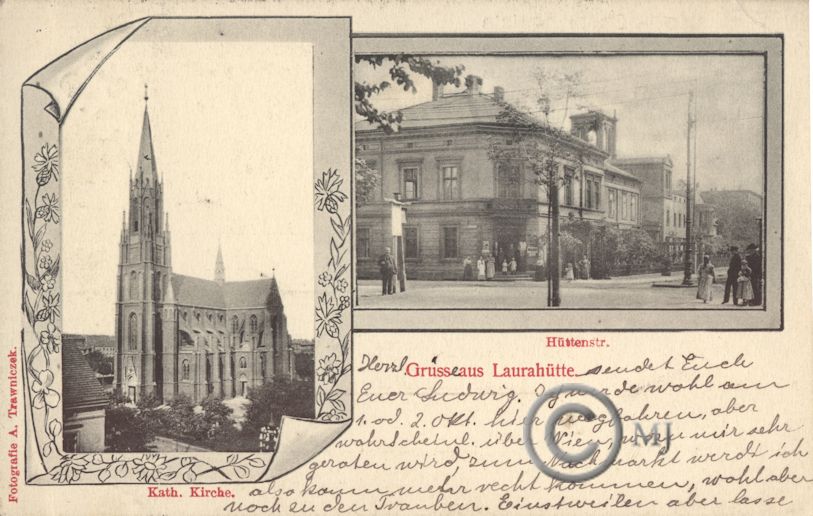 Fotografie A. Trawniczek.
Kath. Kirche.
Hüttenstr.
Herzl. Grüsse aus Laurahütte. sendet Euch
Euer Ludwig. wurde wohl am
1. od. 2. Okt. hier wegfahren, aber
wahrscheinl. über Wien, wozu mir sehr
geraten wird, zum Nachmarkt werdt ich
also kaum mehr recht kommen, wohl aber
noch zu den Trauben. Einstweilen aber lasse
© MJ